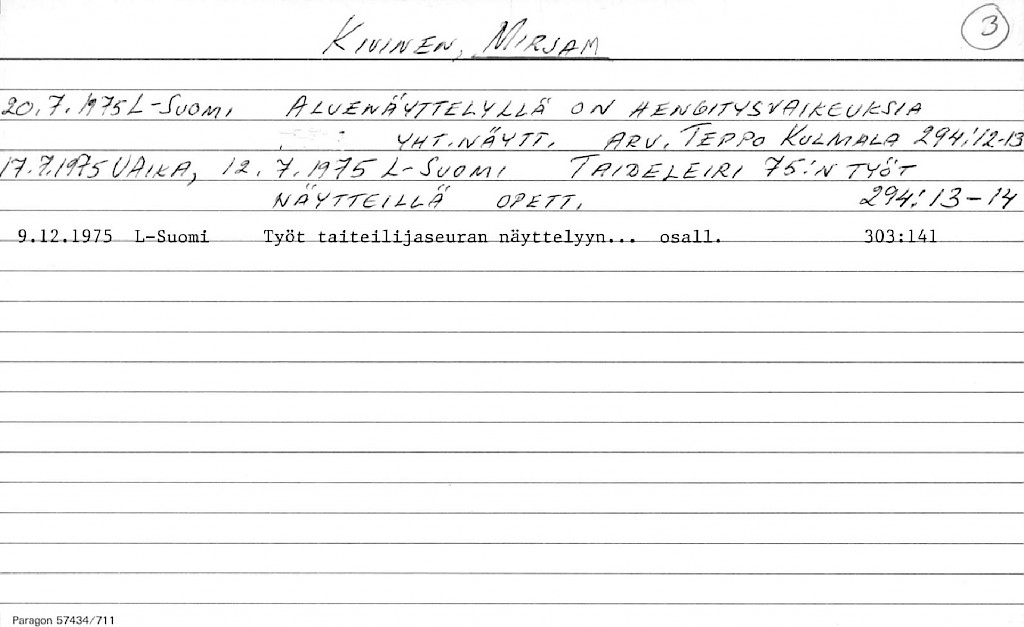 KIVINEN, MIRJAM
3
20.7.1975 L-SUOMI ALUENÄYTTELYLLÄ ON HENGITYSVAIKEUKSIA
YHT.NÄYTT. ARV. TEPPO KULMALA 294:12-13
17.7.1975 VAIKA, 12.7.1975 L-SUOMI TAIDELEIRI 75:N TYÖT
NÄYTTEILLÄ OPETT. 294:13-14
9.12.1975 L-Suomi Työt taiteilijaseuran näyttelyyn... osall. 303:141
Paragon 57434/711